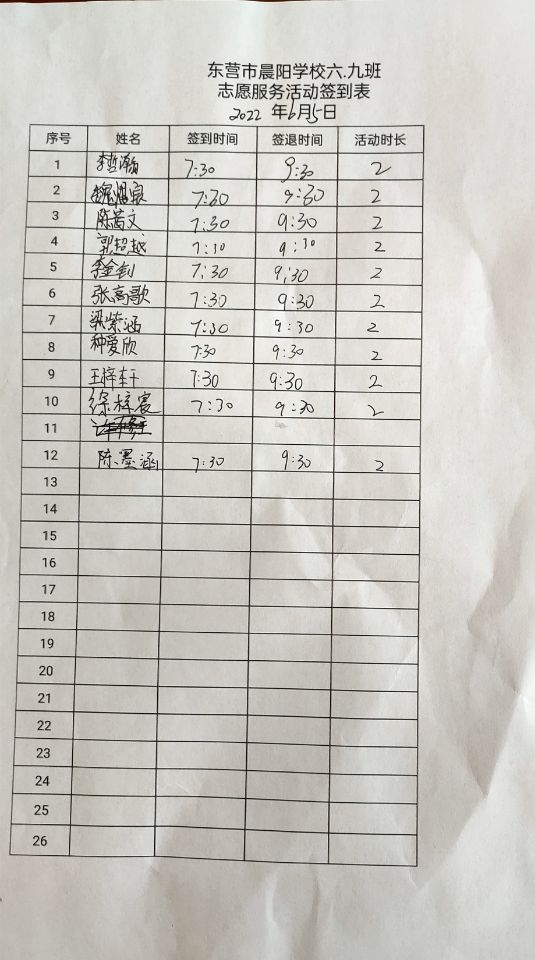 东营市晨阳学校六.九班
志愿服务活动签到表
2022 年6月5日
序号 姓名 签到时间 签退时间 活动时长
1 李哲瀚 7:30 9:30 2
2 7:30 9:30 2
3 陈茜文 7:30 9:30 2
4 郭超越 7:30 9:30 2
5 李金钊 7:30 9:30 2
6 张高歌 7:30 9:30 2
7 梁紫涵 7:30 9:30 2
8 种爱欣 7:30 9:30 2
9 王梓轩 7:30 9:30 2
10 徐梓宸 7:30 9:30 2
11
12 陈墨涵 7:30 9:30 2
13
14
15
16
17
18
19
20
21
22
23
24
25
26